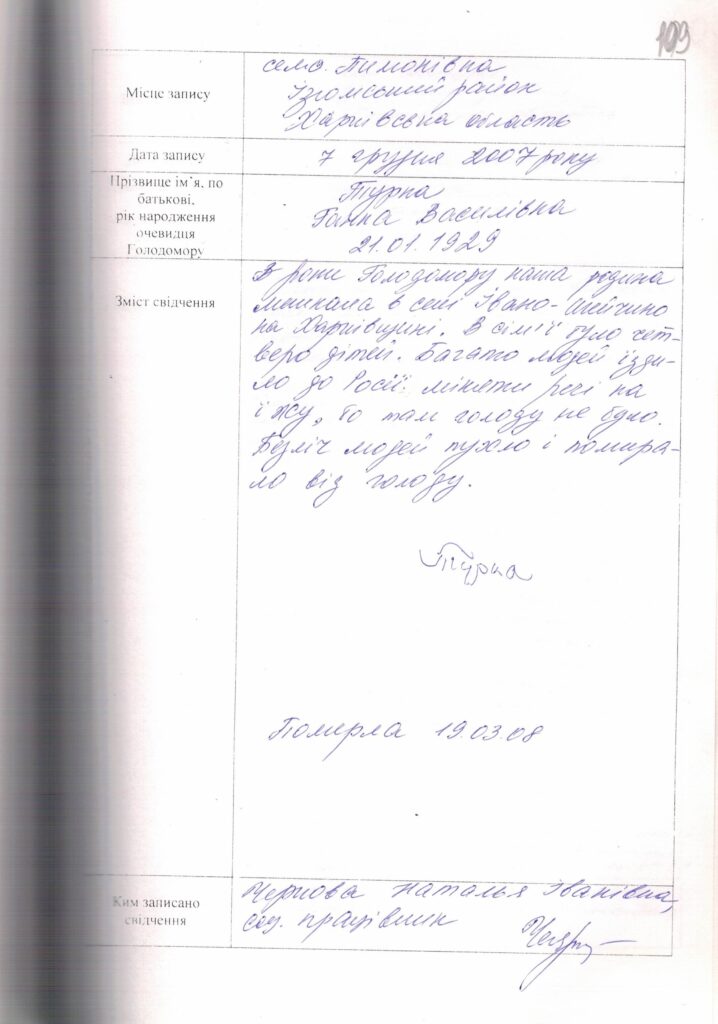 109
село Тимонівка
Ізюмський район
Харківська область
Місце запису
Дата запису
7 грудня 2007 року
Прізвище ім'я, по
батькові,
рік народження
очевидця
Голодомору
Турка
Ганна Василівна
21.01.1929
Зміст свідчення
В роки Голодомору наша родина
мешкала в селі Івано-
на Харківщині. В сім'ї було чет-
веро дітей. Багато людей їзди-
ло до Росії міняти речі на
їжу, бо там голоду не було.
Безліч людей пухло і помира-
ло від голоду.
Турка
Померла 19.03.08
Ким записано
свідчення
Чернова Наталья Іванівна,
соц. працівник